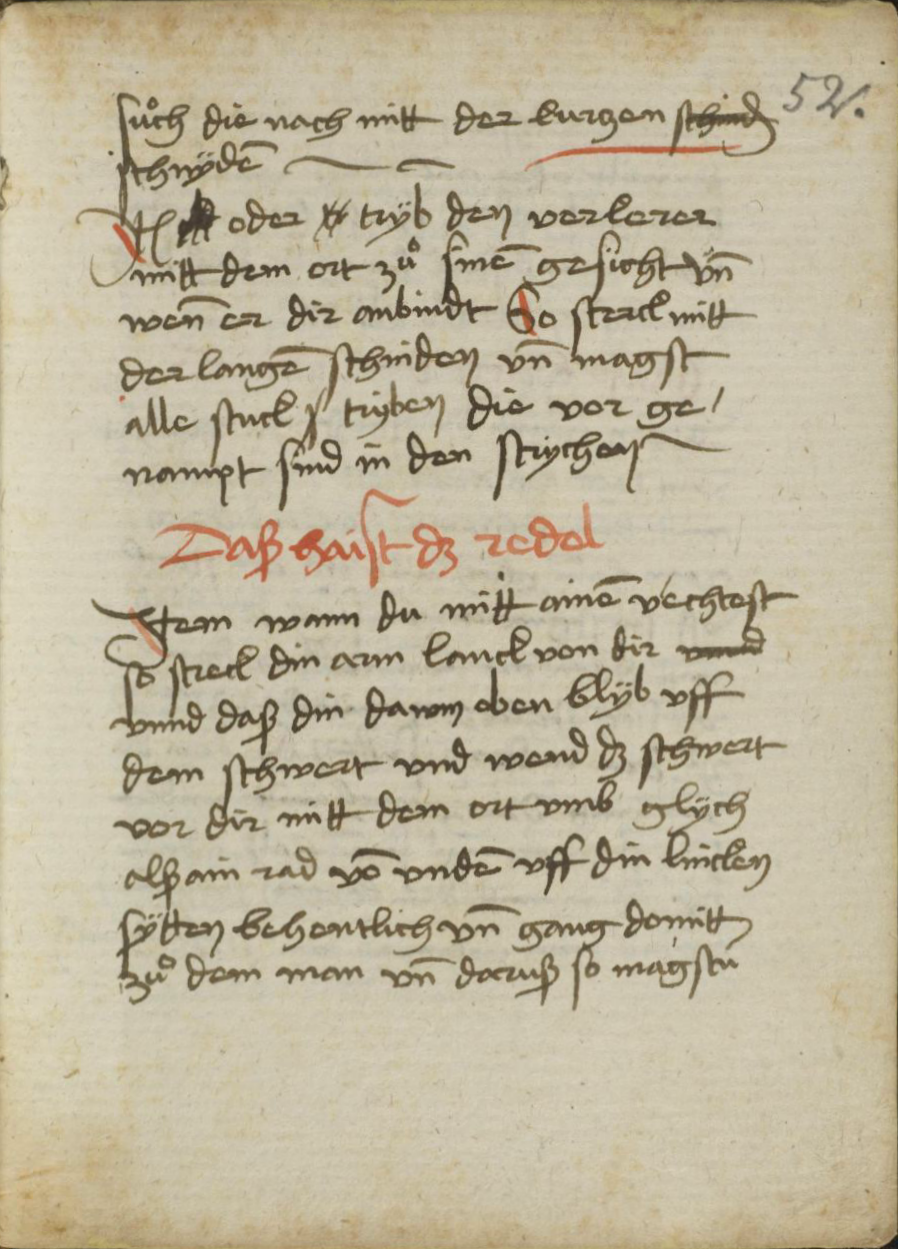 52.
suͦch die nach mitt der kurtzen schnid
schnÿdē
Jt oder tryb den verkerer
mitt dem ort zuͦ sinē gesicht vn̄
wen̄ er dir anbindt So streck mitt
der langē schniden vn̄ magst
alle stuck tryben die vor ge/
nampt sind in den strychen
Daß haist dʒ redel
Item wann du mitt ainē vechtest
so streck din arm lanck von dir vnnd
vnnd daß din dawm oben blÿb vff
dem schwert vnd wend dʒ schwert
vor dir mitt dem ort vmb glÿch
alß ain rad vō vndē vff din lincken
sÿtten behentlich vn̄ gang domitt
zuͦ dem man vn̄ daruß so magstu